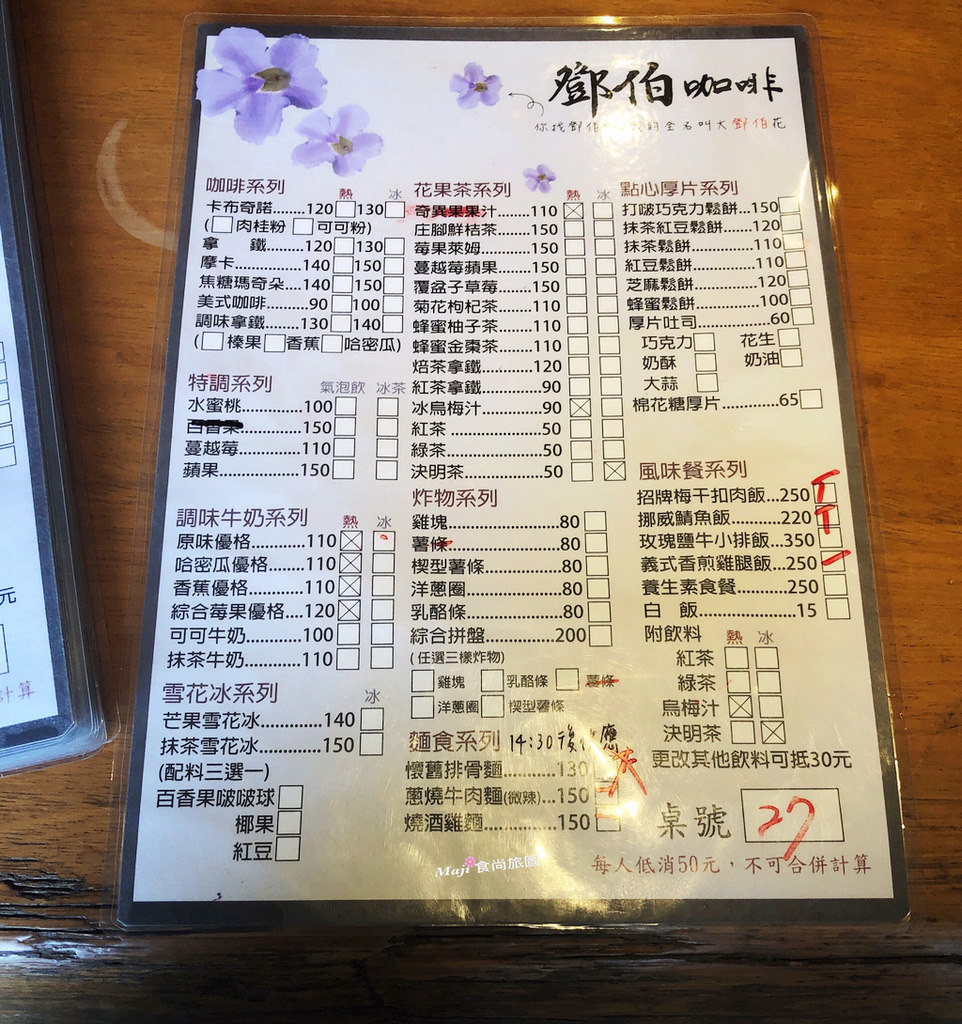 鄧伯咖啡
你找鄧伯 全名叫大鄧伯花
咖啡系列 熱 冰
卡布奇諾.......120 130
(肉桂粉 可可粉)
拿 鐵..............120 130
摩卡.................140 150
焦糖瑪奇朵..140 150
美式咖啡.......90 100
調味拿鐵......130 140
(榛果 香蕉 哈密瓜)
特調系列 氣泡飲 冰茶
水蜜桃.............100
百香果.............150
蔓越莓.............110
蘋果.................150
調味牛奶系列 熱 冰
原味優格..........110
哈密瓜優格......110
香蕉優格..........110
綜合莓果優格...120
可可牛奶..........100
抹茶牛奶..........110
雪花冰系列 冰
芒果雪花冰.........140
抹茶雪花冰.........150
(配料三選一)
百香果啵啵球
椰果
紅豆
花果茶系列 熱 冰
奇異果果汁........110
庄腳鮮桔茶........150
莓果萊姆............150
蔓越莓蘋果........150
覆盆子草莓........150
菊花枸杞茶........110
蜂蜜柚子茶........110
蜂蜜金棗茶........110
焙茶拿鐵............120
紅茶拿鐵............90
冰烏梅汁............90
紅茶...................50
綠茶...................50
決明茶...............50
炸物系列
雞塊........................80
薯條........................80
楔型薯條................80
洋蔥圈....................80
乳酪條....................80
綜合拼盤..............200
(任選三樣炸物)
雞塊 乳酪條 薯條
洋蔥圈 楔型薯條
麵食系列 14:30後供應
懷舊排骨麵............130
蔥燒牛肉麵(微辣)...150
燒酒雞麵................150
點心厚片系列
打啵巧克力鬆餅...150
抹茶紅豆鬆餅......120
抹茶鬆餅..............110
紅豆鬆餅..............110
芝麻鬆餅..............120
蜂蜜鬆餅..............100
厚片吐司..............60
巧克力 花生
奶酥 奶油
大蒜
棉花糖厚片..........65
風味餐系列
招牌梅干扣肉飯...250
挪威鯖魚飯.........220
玫瑰鹽牛小排飯...350
義式香煎雞腿飯...250
養生素食餐.........250
白 飯..................15
附飲料 熱 冰
紅茶
綠茶
烏梅汁
決明茶
更改其他飲料可抵30元
桌號 27
每人低消50元，不可合併計算
Maji 食尚旅圖
元
計算